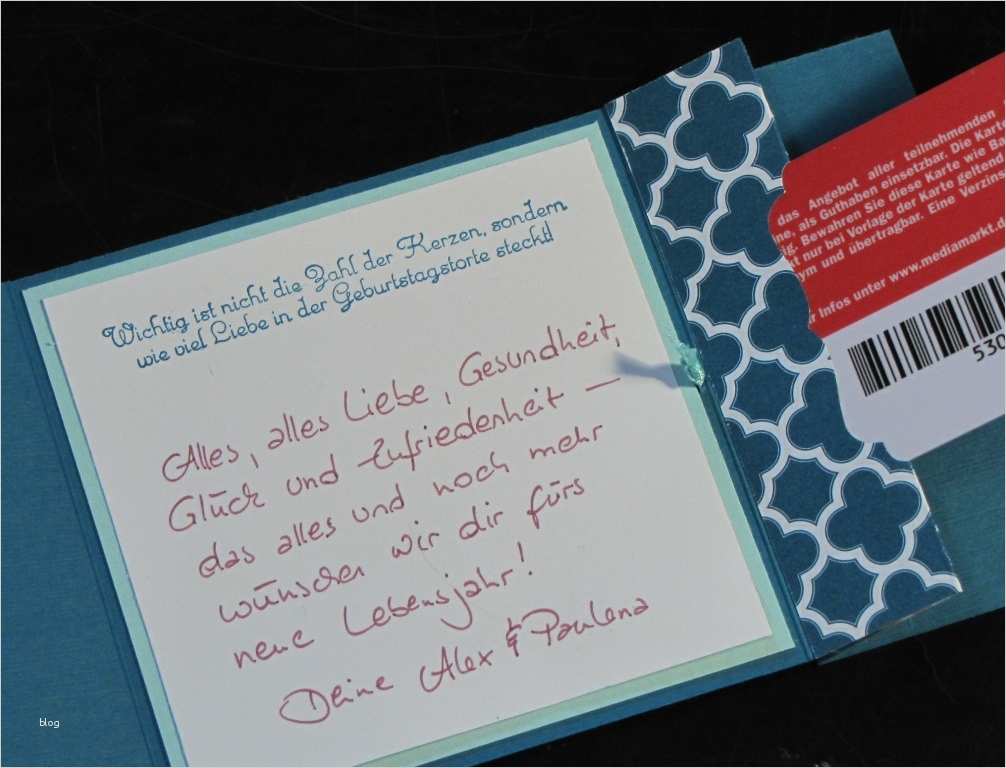 Wichtig ist nicht die Zahl der Kerzen, sondern
wie viel Liebe in der Geburtstagstorte steckt!
Alles, alles Liebe, Gesundheit,
Glück und Zufriedenheit –
das alles und noch mehr
wünschen wir dir fürs
neue Lebensjahr!
Deine Alex & Paulena
das Angebot aller teilnehmenden
ne, als Guthaben einsetzbar. Die Karte
ig. Bewahren Sie diese Karte wie Ba
kt nur bei Vorlage der Karte geltend
ym und übertragbar. Eine Verzins
r Infos unter www.mediamarkt.d
530
blog